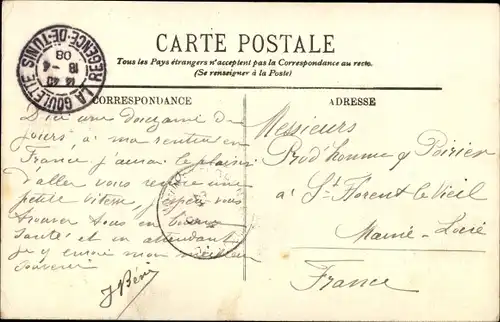 CARTE POSTALE
Tous les Pays étrangers n'acceptent pas la Correspondance au recto.
(Se renseigner à la Poste)
CORRESPONDANCE
ADRESSE
LA GOULETTE
REGENCE-DE-TUNIS
14 40
18 -4
08
D'ici une douzaine de
jours, à ma rentrée en
France j'aurai le plaisir
d'aller vous rendre une
petite visite, j'espère vous
trouver tous en bonne
santé et en attendant
je y envoie mon meilleur
souvenir
Messieurs
Prod'homme & Poirier
à St Florent le Vieil
Maine-Loire
France